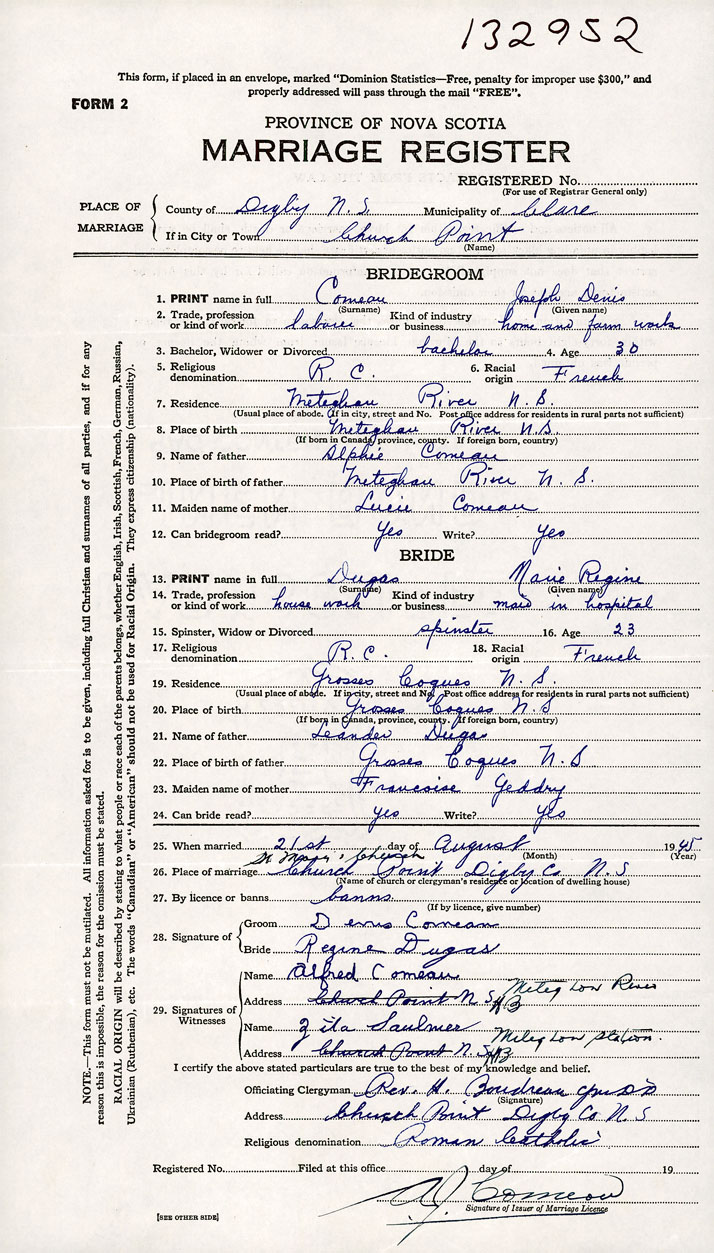 132952
This form, if placed in an envelope, marked "Dominion Statistics—Free, penalty for improper use $300," and
properly addressed will pass through the mail "FREE".
FORM 2
PROVINCE OF NOVA SCOTIA
MARRIAGE REGISTER
REGISTERED No.
(For use of Registrar General only)
PLACE OF MARRIAGE
County of Digby N.S. Municipality of Clare
If in City or Town Church Point
(Name)
BRIDEGROOM
1. PRINT name in full Comeau Joseph Denis
(Surname) (Given name)
2. Trade, profession or kind of work laborer Kind of industry or business home and farm work
3. Bachelor, Widower or Divorced bachelor 4. Age 30
5. Religious denomination R. C. 6. Racial origin French
7. Residence Meteghan River N. S.
(Usual place of abode. If in city, street and No. Post office address for residents in rural parts not sufficient)
8. Place of birth Meteghan River N.S.
(If born in Canada, province, county. If foreign born, country)
9. Name of father Alphie Comeau
10. Place of birth of father Meteghan River N. S.
11. Maiden name of mother Lucie Comeau
12. Can bridegroom read? Yes Write? Yes
BRIDE
13. PRINT name in full Dugas Marie Regine
(Surname) (Given name)
14. Trade, profession or kind of work house work Kind of industry or business maid in hospital
15. Spinster, Widow or Divorced spinster 16. Age 23
17. Religious denomination R. C. 18. Racial origin French
19. Residence Grosses Coques N. S.
(Usual place of abode. If in city, street and No. Post office address for residents in rural parts not sufficient)
20. Place of birth Grosses Coques N. S
(If born in Canada, province, county. If foreign born, country)
21. Name of father Leander Dugas
22. Place of birth of father Grosses Coques N. S
23. Maiden name of mother Francoise Geddry
24. Can bride read? yes Write? Yes
25. When married 21st day of August 1945
(Month) (Year)
St Mary's Church
26. Place of marriage Church Point Digby Co. N. S
(Name of church or clergyman's residence or location of dwelling house)
27. By licence or banns banns
(If by licence, give number)
28. Signature of
Groom Denis Comeau
Bride Regine Dugas
29. Signatures of Witnesses
Name Alfred Comeau
Address Church Point N S HB Meteghan River
Name Zita Saulnier
Address Church Point N. S HB Meteghan Station.
I certify the above stated particulars are true to the best of my knowledge and belief.
Officiating Clergyman Rev. H. Boudreau
(Signature)
Address Church Point Digby Co N. S
Religious denomination Roman Catholic
Registered No. Filed at this office day of 19
Comeau
Signature of Issuer of Marriage Licence
[SEE OTHER SIDE]
NOTE.—This form must not be mutilated. All information asked for is to be given, including full Christian and surnames of all parties, and if for any
reason this is impossible, the reason for the omission must be stated.
RACIAL ORIGIN will be described by stating to what people or race each of the parents belongs, whether English, Irish, Scottish, French, German, Russian,
Ukrainian (Ruthenian), etc. The words "Canadian" or "American" should not be used for Racial Origin. They express citizenship (nationality).